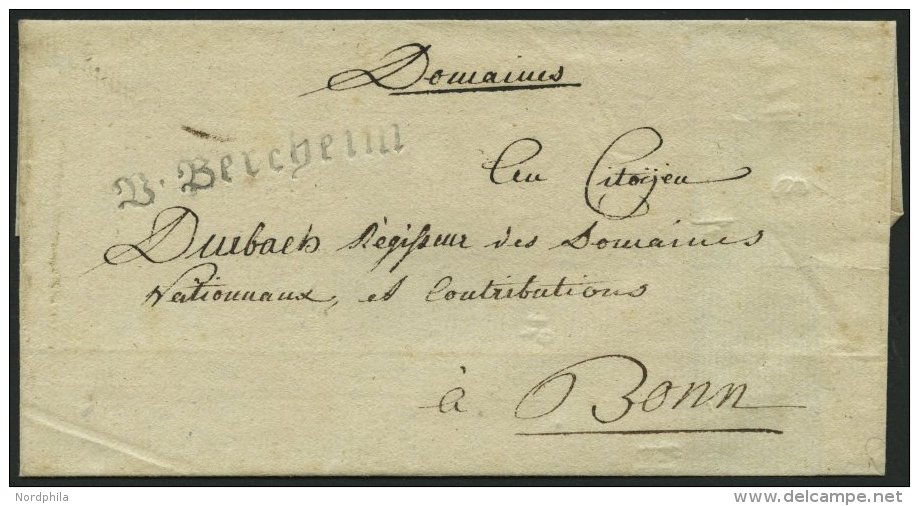 Domaines
V. Bercheim
Au Citoÿen
Durbach Régisseur des Domaines
Nationnaux, et Contributions
à Bonn
Nordphila
delcampe.net